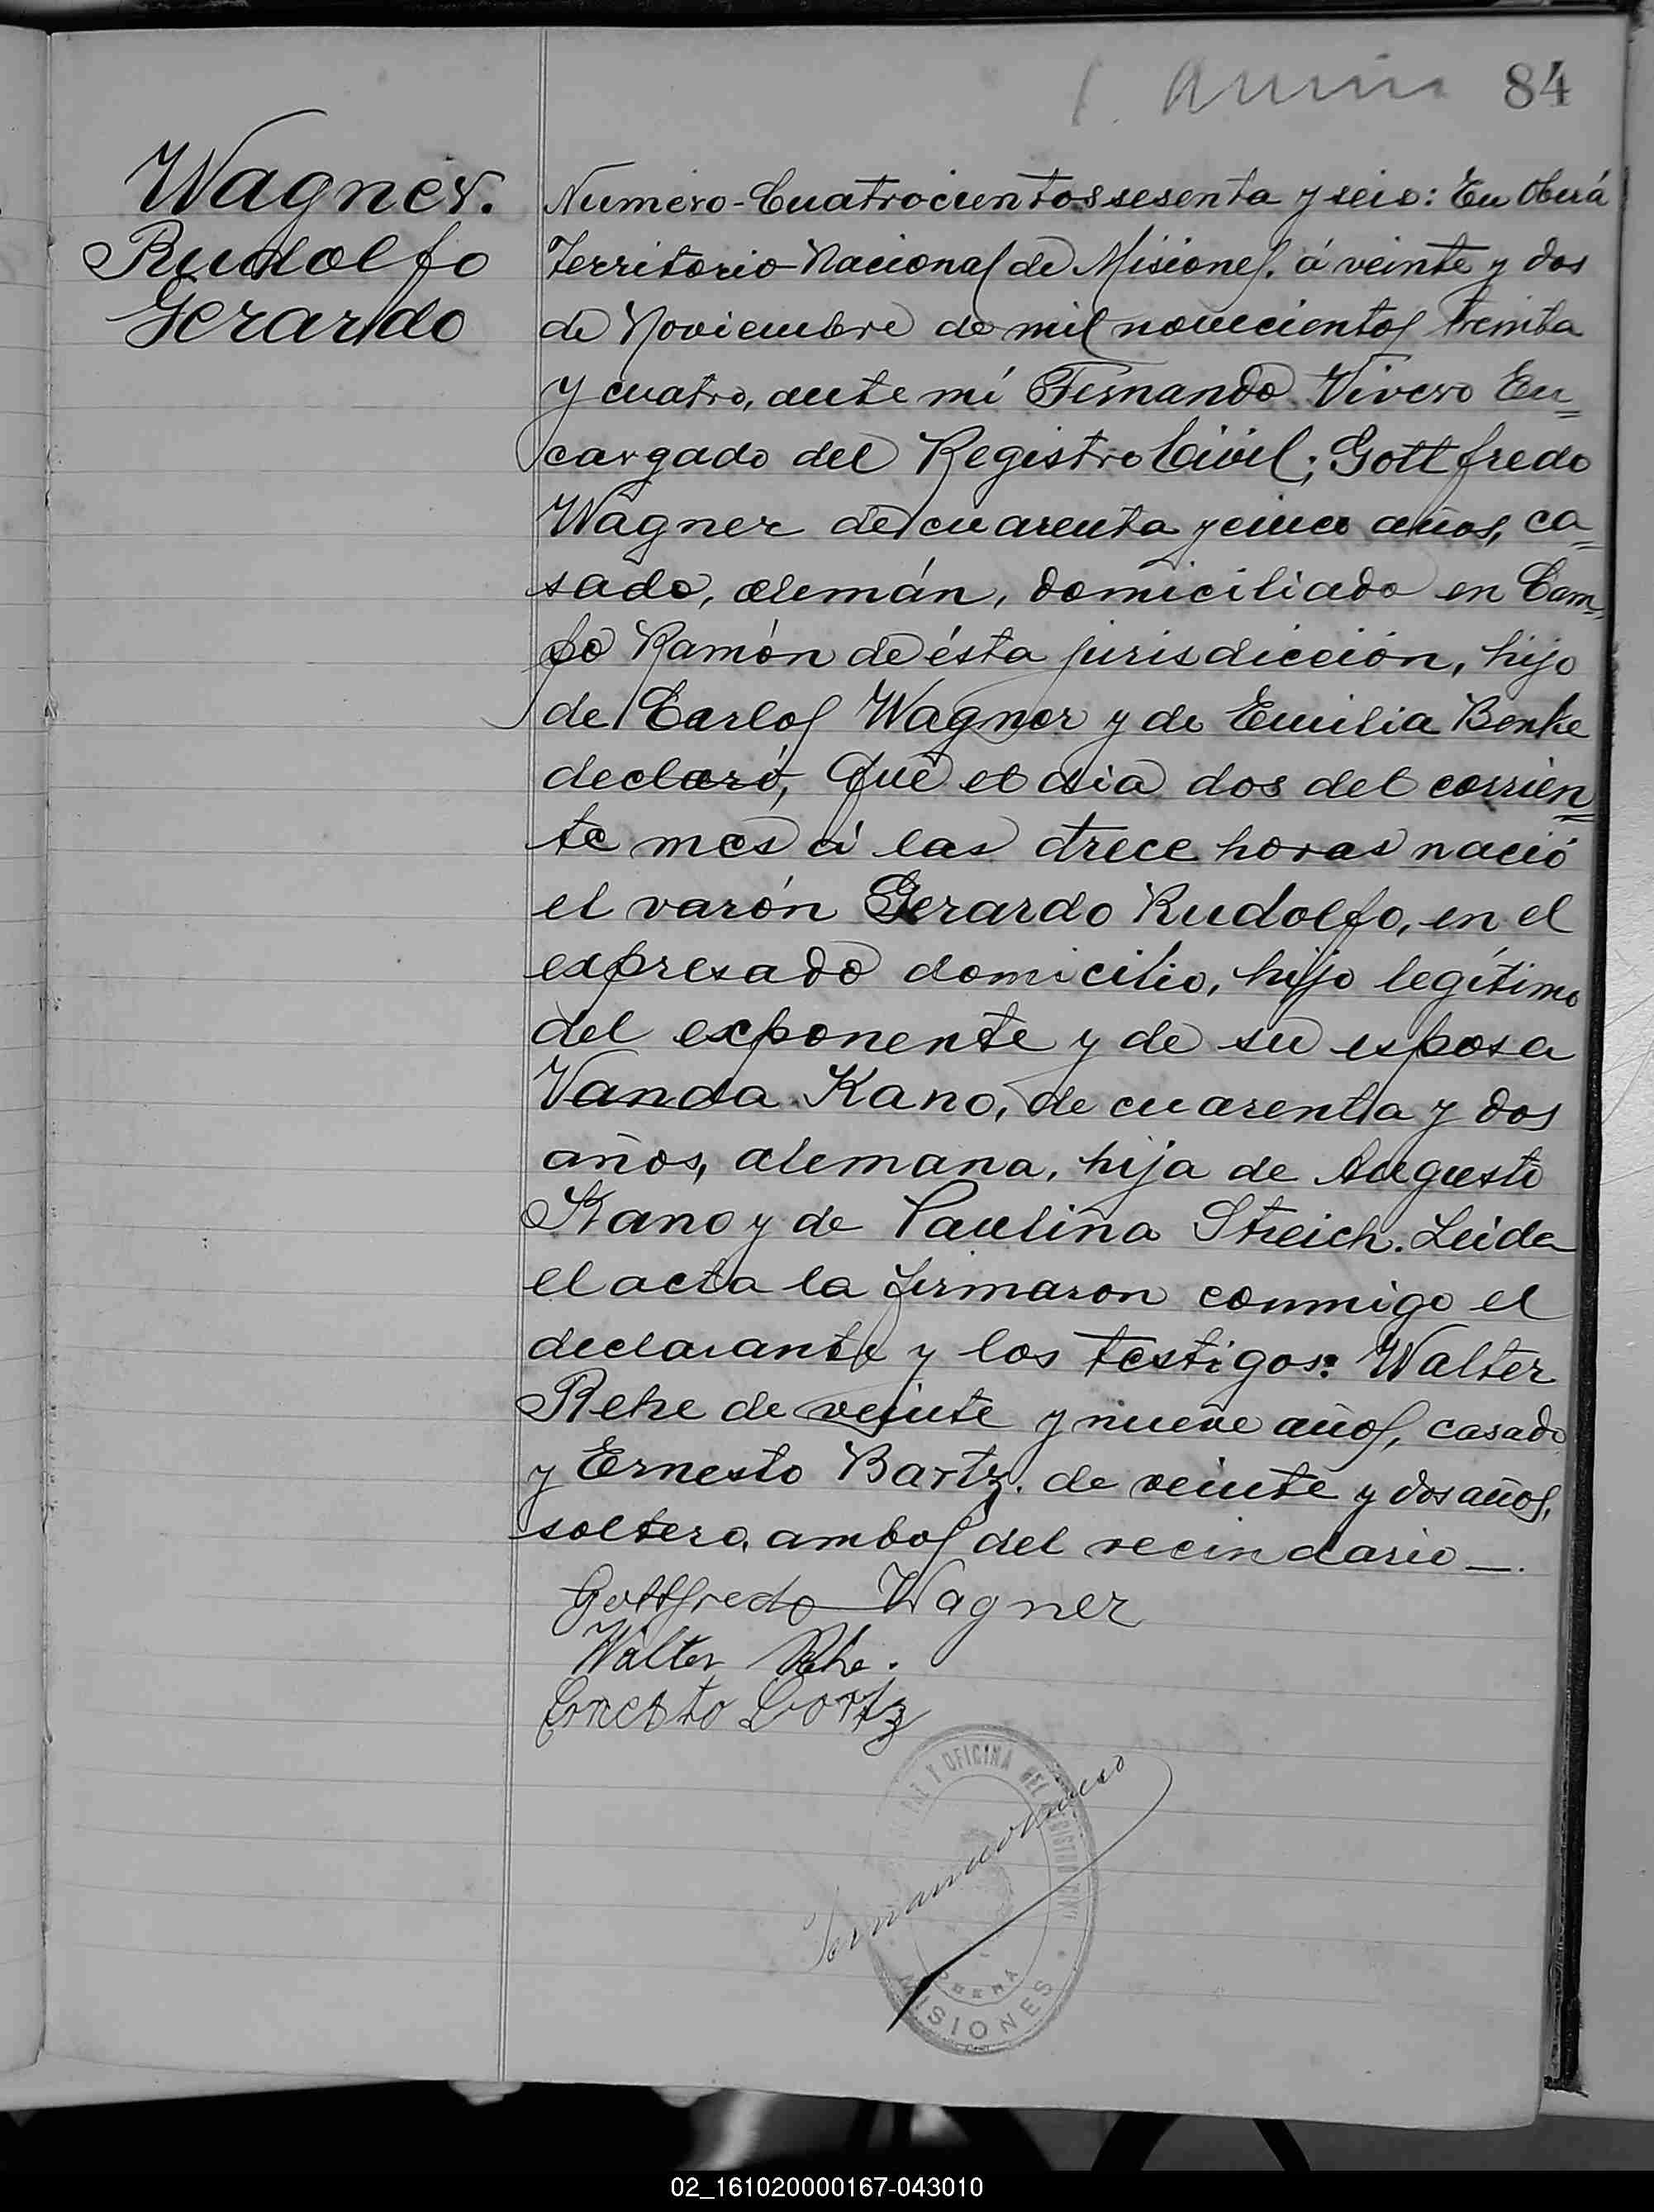 84
Wagner.
Rudolfo
Gerardo
Numero-Cuatrocientos sesenta y seis: En Oberá
Territorio Nacional de Misiones. á veinte y dos
de Noviembre de mil novecientos treinta
y cuatro, ante mí Fernando Vivero En=
cargado del Registro Civil; Gottfredo
Wagner de cuarenta y cinco años, ca=
sado, alemán, domiciliado en Cam=
po Ramón de ésta jurisdicción, hijo
de Carlos Wagner y de Emilia Benke
declaró, Que el dia dos del corrien=
te mes á las trece horas nació
el varón Gerardo Rudolfo, en el
expresado domicilio, hijo legítimo
del exponente y de su esposa
Vanda Kano, de cuarenta y dos
años, alemana, hija de Augusto
Kano y de Paulina Streich. Leida
el acta la firmaron conmigo el
declarante y los testigos: Walter
Rehe de veinte y nueve años, casado
y Ernesto Bartz. de veinte y dos años,
soltero, ambos del vecindario—.
Gottfredo Wagner
Walter Rehe.
Ernesto Bartz
Fernando Vivero
Y OFICINA DEL REGISTRO CIVIL
OBERÁ
MISIONES
02_161020000167-043010